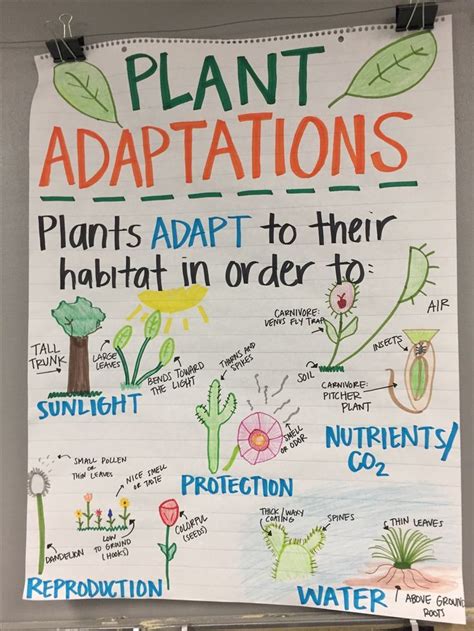 PLANT
ADAPTATIONS
Plants ADAPT to their
habitat in order to:
TALL
TRUNK
LARGE
LEAVES
BENDS TOWARD
THE LIGHT
SUNLIGHT
THORNS AND
SPIKES
SMELL
OR ODOR
PROTECTION
CARNIVORE:
VENUS FLY TRAP
AIR
SOIL
INSECTS
CARNIVORE:
PITCHER
PLANT
NUTRIENTS/
CO2
SMALL POLLEN
OR
THIN LEAVES
DANDELION
NICE SMELL
OR TASTE
LOW
TO GROUND
(HOOKS)
COLORFUL
(SEEDS)
REPRODUCTION
THICK/WAXY
COATING
SPINES
THIN LEAVES
ABOVE GROUND
ROOTS
WATER